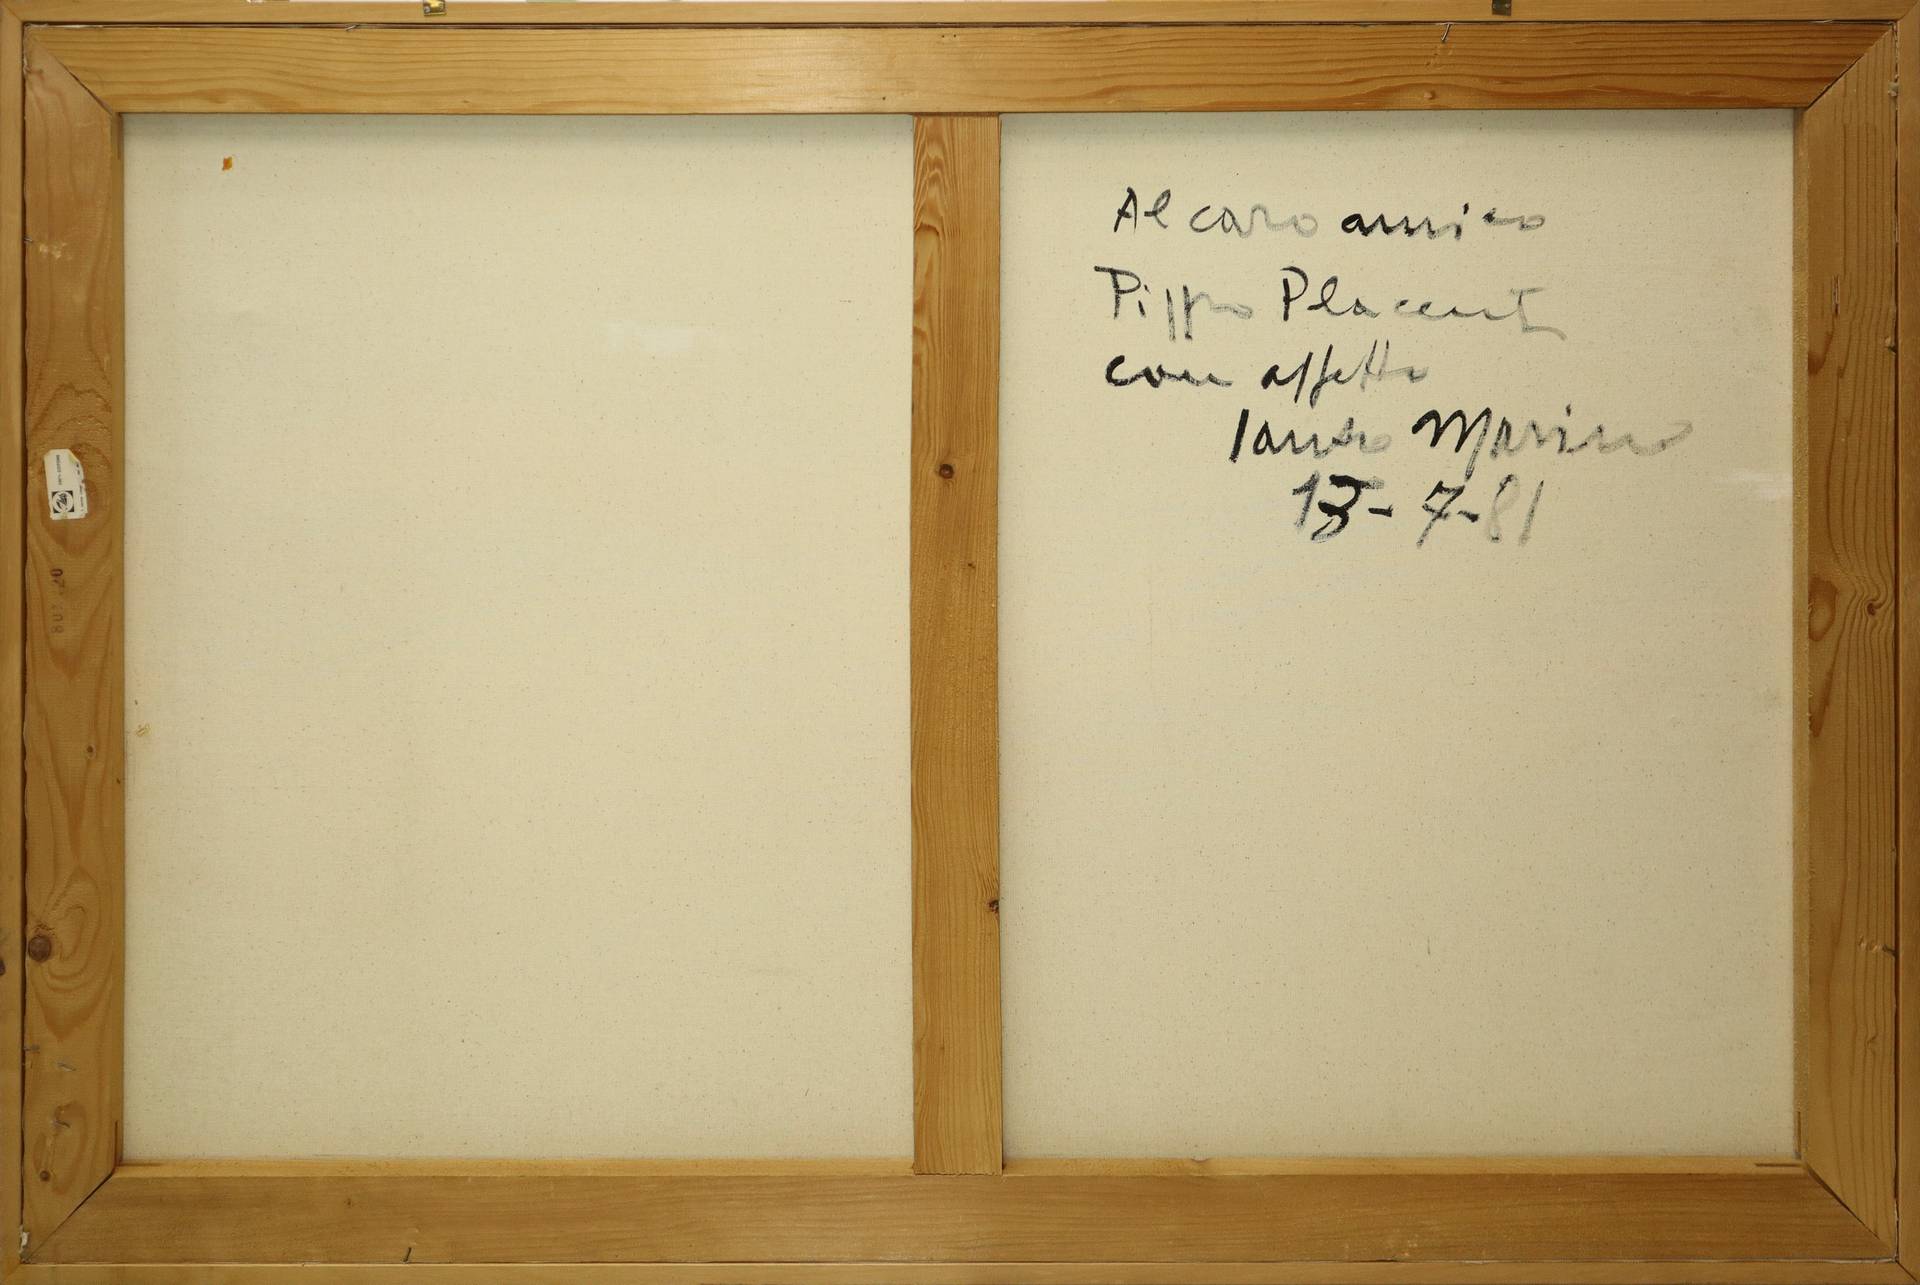 Al caro amico
Pippo Placenti
con affetto
Santo Marino
13-7-81